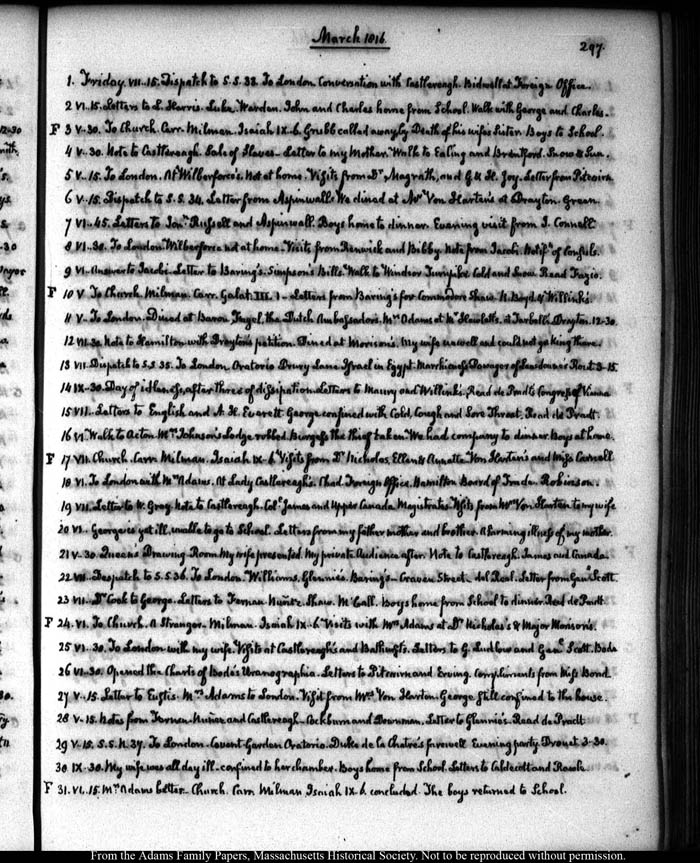 March 1816.
297.
1. Friday. VII..15. Dispatch to S.S. 33. To London. Conversation with Castlereagh. Bidwell at Foreign Office.
2 VI..15. Letters to L. Harris. Luke. Warden. John and Charles home from School. Walk with George and Charles.
F 3 V..30. To Church. Carr. Milman. Isaiah IX. 6. Grubb called away by Death of his wife's Sister. Boys to School.
4 V..30. Note to Castlereagh. Sale of Slaves. Letter to my Mother. Walk to Ealing and Brentford. Snow & Sun.
5 V..15. To London. At Wilberforce's. Not at home. Visits from Dr. Magrath, and G. H. Joy. Letter from Pitcairn
6 V..15. Dispatch to S.S. 34. Letter from Aspinwall. We dined at Mr. Von Harten's at Drayton Green.
7 VI..45. Letters to Jonn. Russell and Aspinwall. Boys home to dinner. Evening visit from J. Connell
8 VI..30. To London. Wilberforce not at home. Visits from Renwick and Bibby. Note from Jacobi. Notifn. of Consuls.
9 VI. Answer to Jacobi. Letter to Baring's. Simpson's Bills. Walk to Windsor Turnpike. Cold and Snow. Read Fazio.
F 10 V. To Church. Milman. Carr. Galat. III. 1. Letters from Baring's for Commodore Shaw. N. Boyd & Willink's.
11 V. To London. Dined at Baron Fagel, the Dutch Ambassador's. Mrs. Adams at Mr. Hewlett's, at Tarball's Drayton. 12-30.
12 VII.30. Note to Hamilton with Drayton's petition. Dined at Morison's. My wife unwell and could not go King there.
13 VII. Dispatch to S.S 35. To London. Oratorio Drury Lane Israel in Egypt. Marchioness Dowager of Lansdown's Rout. 3-15.
14 IX-30. Day of idleness, after three of dissipation. Letters to Maury and Willink's. Read de Pradt's Congress of Vienna
15 VII. Letters to English and A. H. Everett. George confined with Cold, Cough and Sore Throat. Read de Pradt.
16 VI. Walk to Acton. Mrs. Johnson's Lodge robbed. Burgess the thief taken. We had company to dinner. Boys at home.
F 17 VII. Church. Carr. Milman. Isaiah IX. 6. Visits from Dr. Nicholas, Ellen & Annette Von Harten's and Miss Carrell
18 VI. To London with Mrs. Adams. At Lady Castlereagh's. Chad. Foreign Office. Hamilton Board of Trade. Robinson.
19 VII. Letter to W. Gray. Note to Castlereagh. Coll. James and Upper Canada Magistrates. Visits from Mrs. Von Harten to my wife
20 VI. George is yet ill, unable to go to School. Letters from my father mother and brother. Alarming illness of my mother.
21 V..30. Queen's Drawing Room. My wife presented. My private Audience after. Note to Castlereagh. James and Canada.
22 VII. Despatch to S.S 36. To London. Williams. Glennie's. Baring's. Craven Street. del Real. Letter from Genl. Scott.
23 VII. Dr. Cook to George. Letters to Fernan Nuñez. Shaw. McCall. Boys home from School to dinner. Read de Pradt.
F 24. VI. To Church. A Stranger. Milman. Isaiah IX. 6. Visits with Mrs Adams at Dr. Nicholas's & Major Morison's.
25 VI.30. To London with my wife. Visits at Castlereagh's and Bathurst's. Letters to G. Ludlow and Genl. Scott. Bode
26 VI-30. Opened the Charts of Bode's Uranographia. Letters to Pitcairn and Erving. Compliments from Miss Bond.
27 V..15. Letter to Eustis. Mrs. Adams to London. Visit from Mrs. Von Harten. George still confined to the house.
28 V..15. Notes from Fernan Nuñez and Castlereagh. Cockburn and Boarman. Letter to Glennie's. Read de Pradt
29 V.15. S.S. N.37. To London. Covent-Garden Oratorio. Duke de la Chatre's farewell Evening party. Drouet 3-30.
30 IX-30. My wife was all day ill. confined to her chamber. Boys home from School. Letters to Caldecott and
F 31. VI..15. Mrs Adams better. Church. Carr. Milman Isaiah IX. 6. concluded. The boys returned to School.
From the Adams Family Papers, Massachusetts Historical Society. Not to be reproduced without permission.